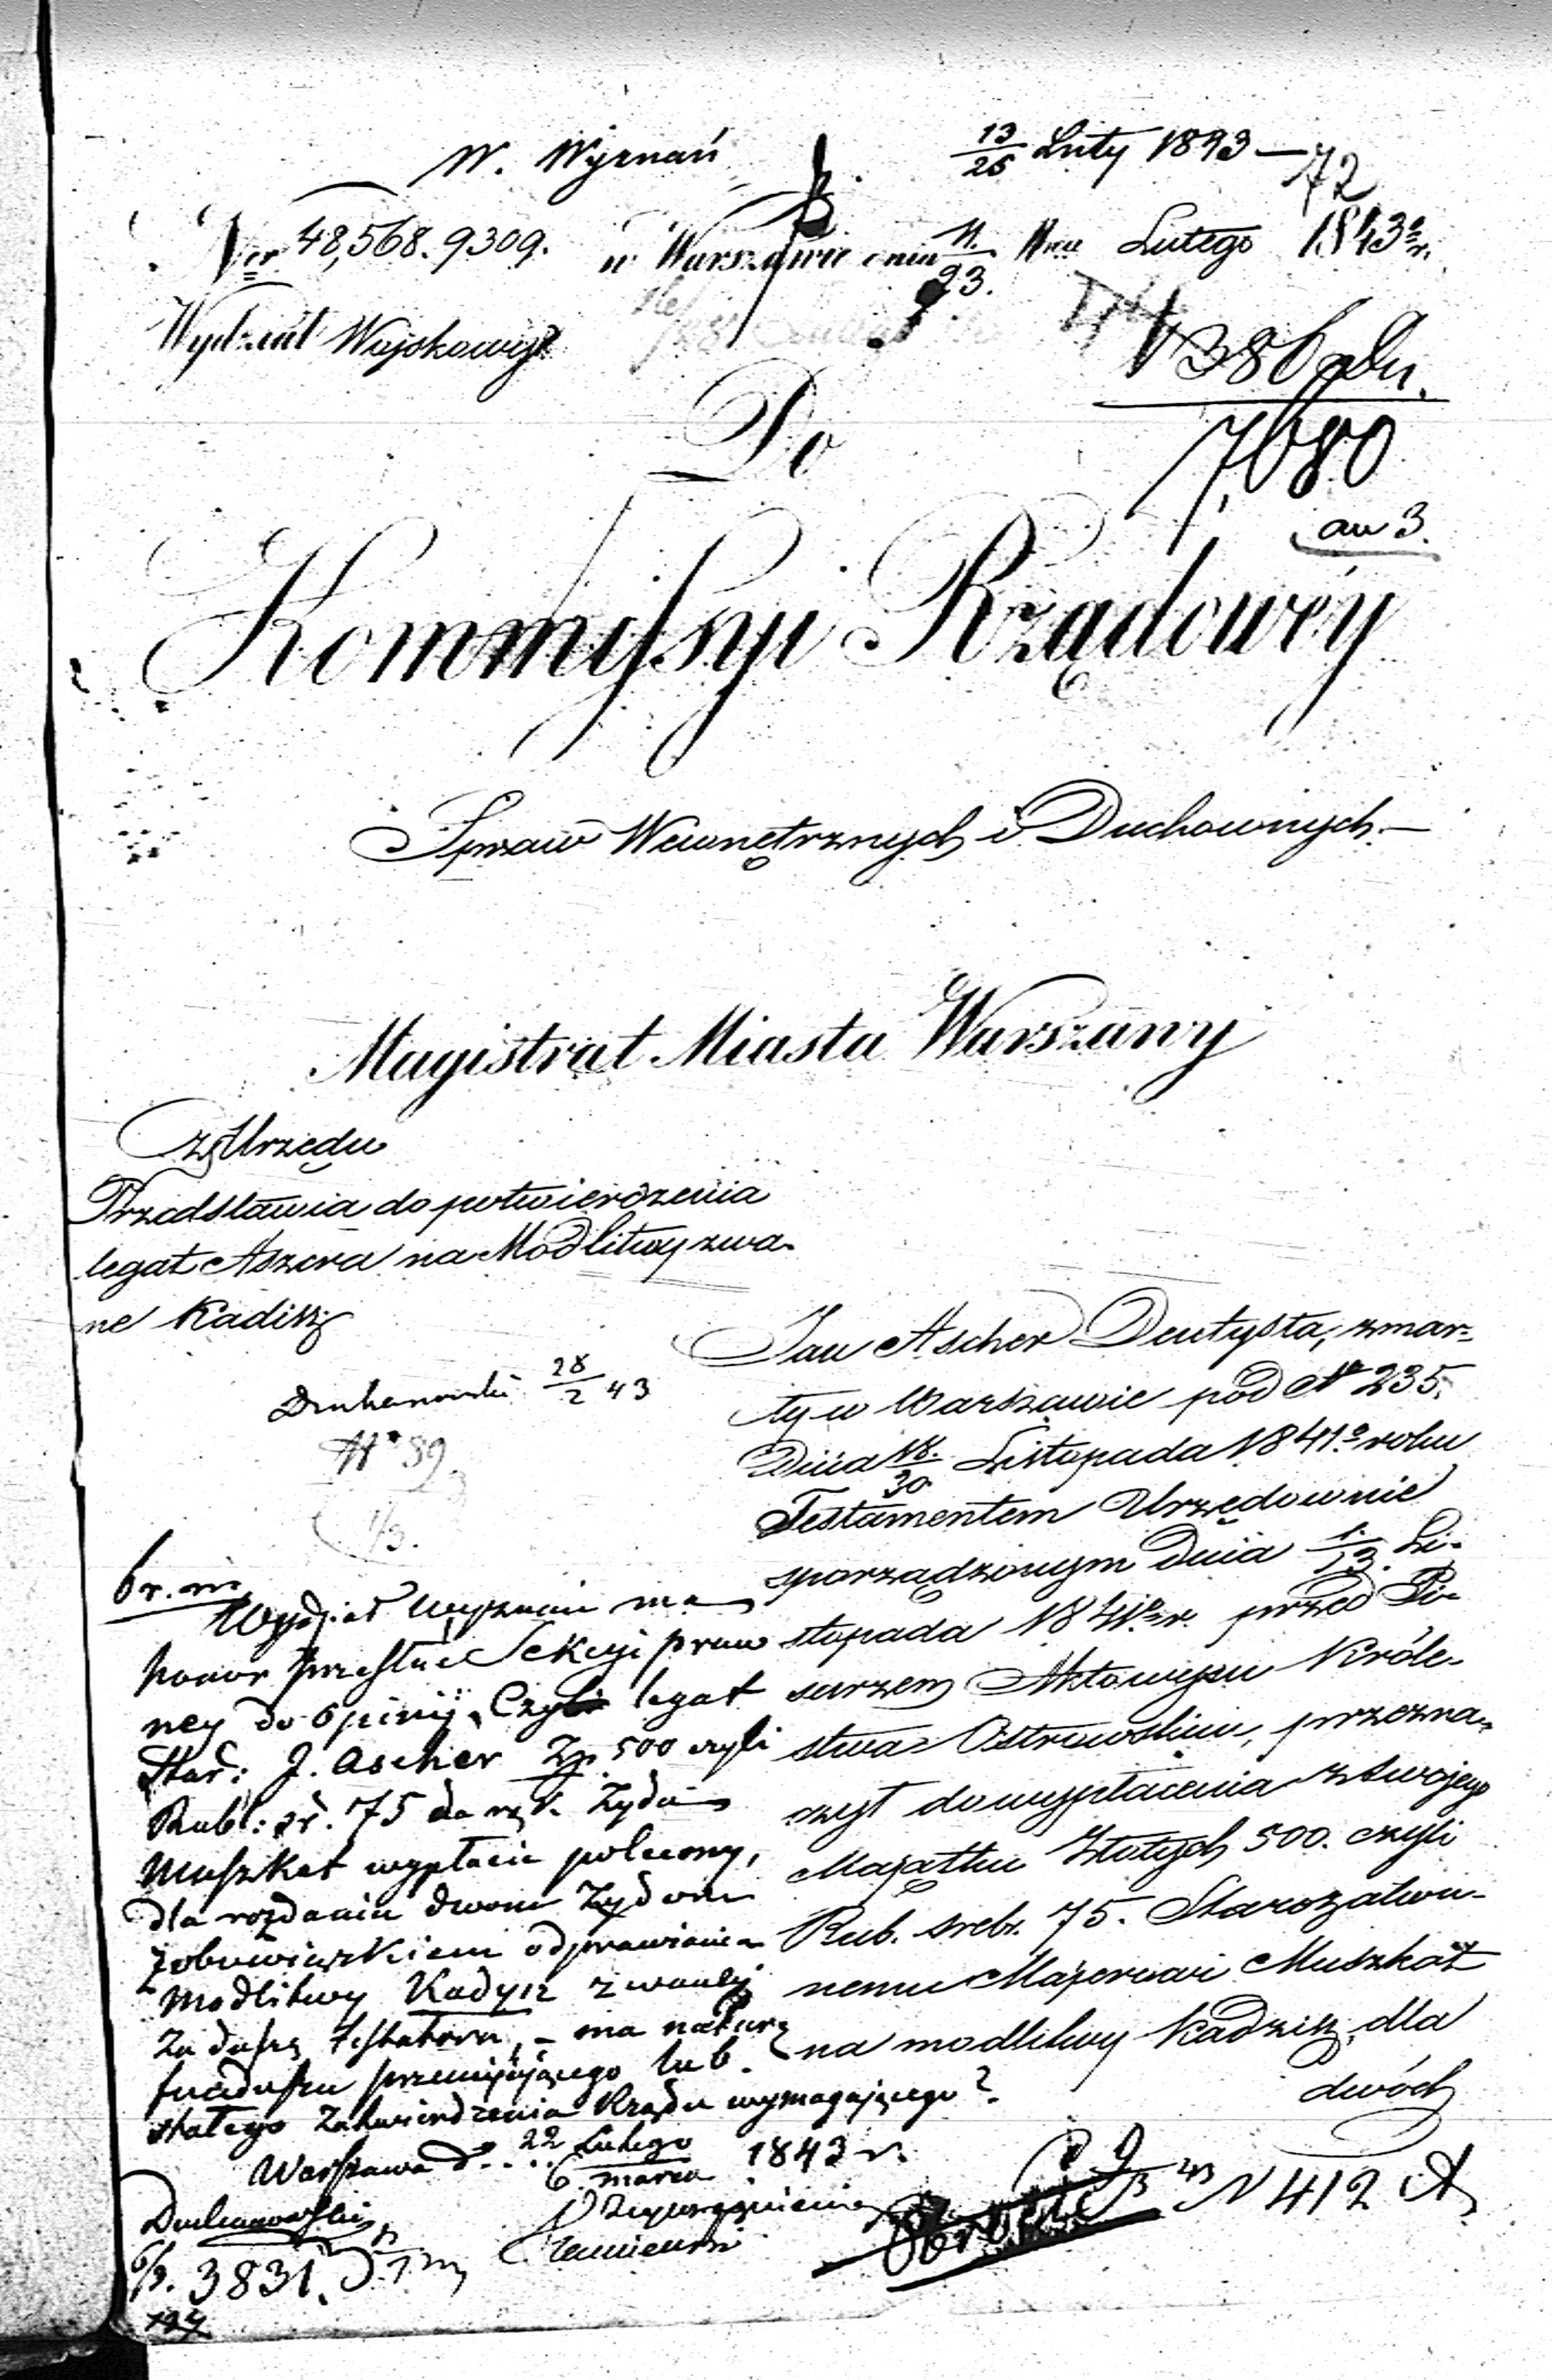 W. Wyznań
13/25 Luty 1843 — 72
Ner 48,568. 9309. w Warszawie dnia 11./23. Mca Lutego 1843º r.
Wydział Wojskowy
7,680
Do
Kommissyi Rządowéy
Spraw Wewnętrznych i Duchownych.—
Magistrat Miasta Warszawy
z Urzędu
Przedstawia do potwierdzenia
legat Aszera na Modlitwy zwa-
ne Kadisz
28/2 43
Nº 89
1/3.
Jan Ascher Dentysta, zmar-
ty w Warszawie pod Nº 235.
Dnia 18./30 Listopada 1841º roku
Testamentem Urzędownie
sporządzonym Dnia 1./13. Li-
stopada 1841º r. przed Pi-
sarzem Aktowym Króle-
stwa Ostrowskim, przezna-
czył do wypłacenia z swojego
Majątku Złotych 500. czyli
Rub. srebr. 75. Starozakon-
nemu Majerowi Muszkat
na modlitwy Kadzisz, dla
dwóch
Wydział Wyznań ma
honor przesłać Sekcyi praw
ney do opinij, Czyli legat
Star: J. Ascher Zp. 500 czyli
Rubl: sr. 75 do rąk Żyda
Muszkat wypłacić polecony,
dla rozdania dwom Żydom
z obowiązkiem odprawiania
modlitwy Kadysz zwanéj
za duszę testatora, — ma naturę
funduszu przemijającego lub
stałego zatwierdzenia Rządu wymagającego?
Warszawa d. 22 Lutego/6 marca 1843 r.
6/3. 3831.
43 N 412 A